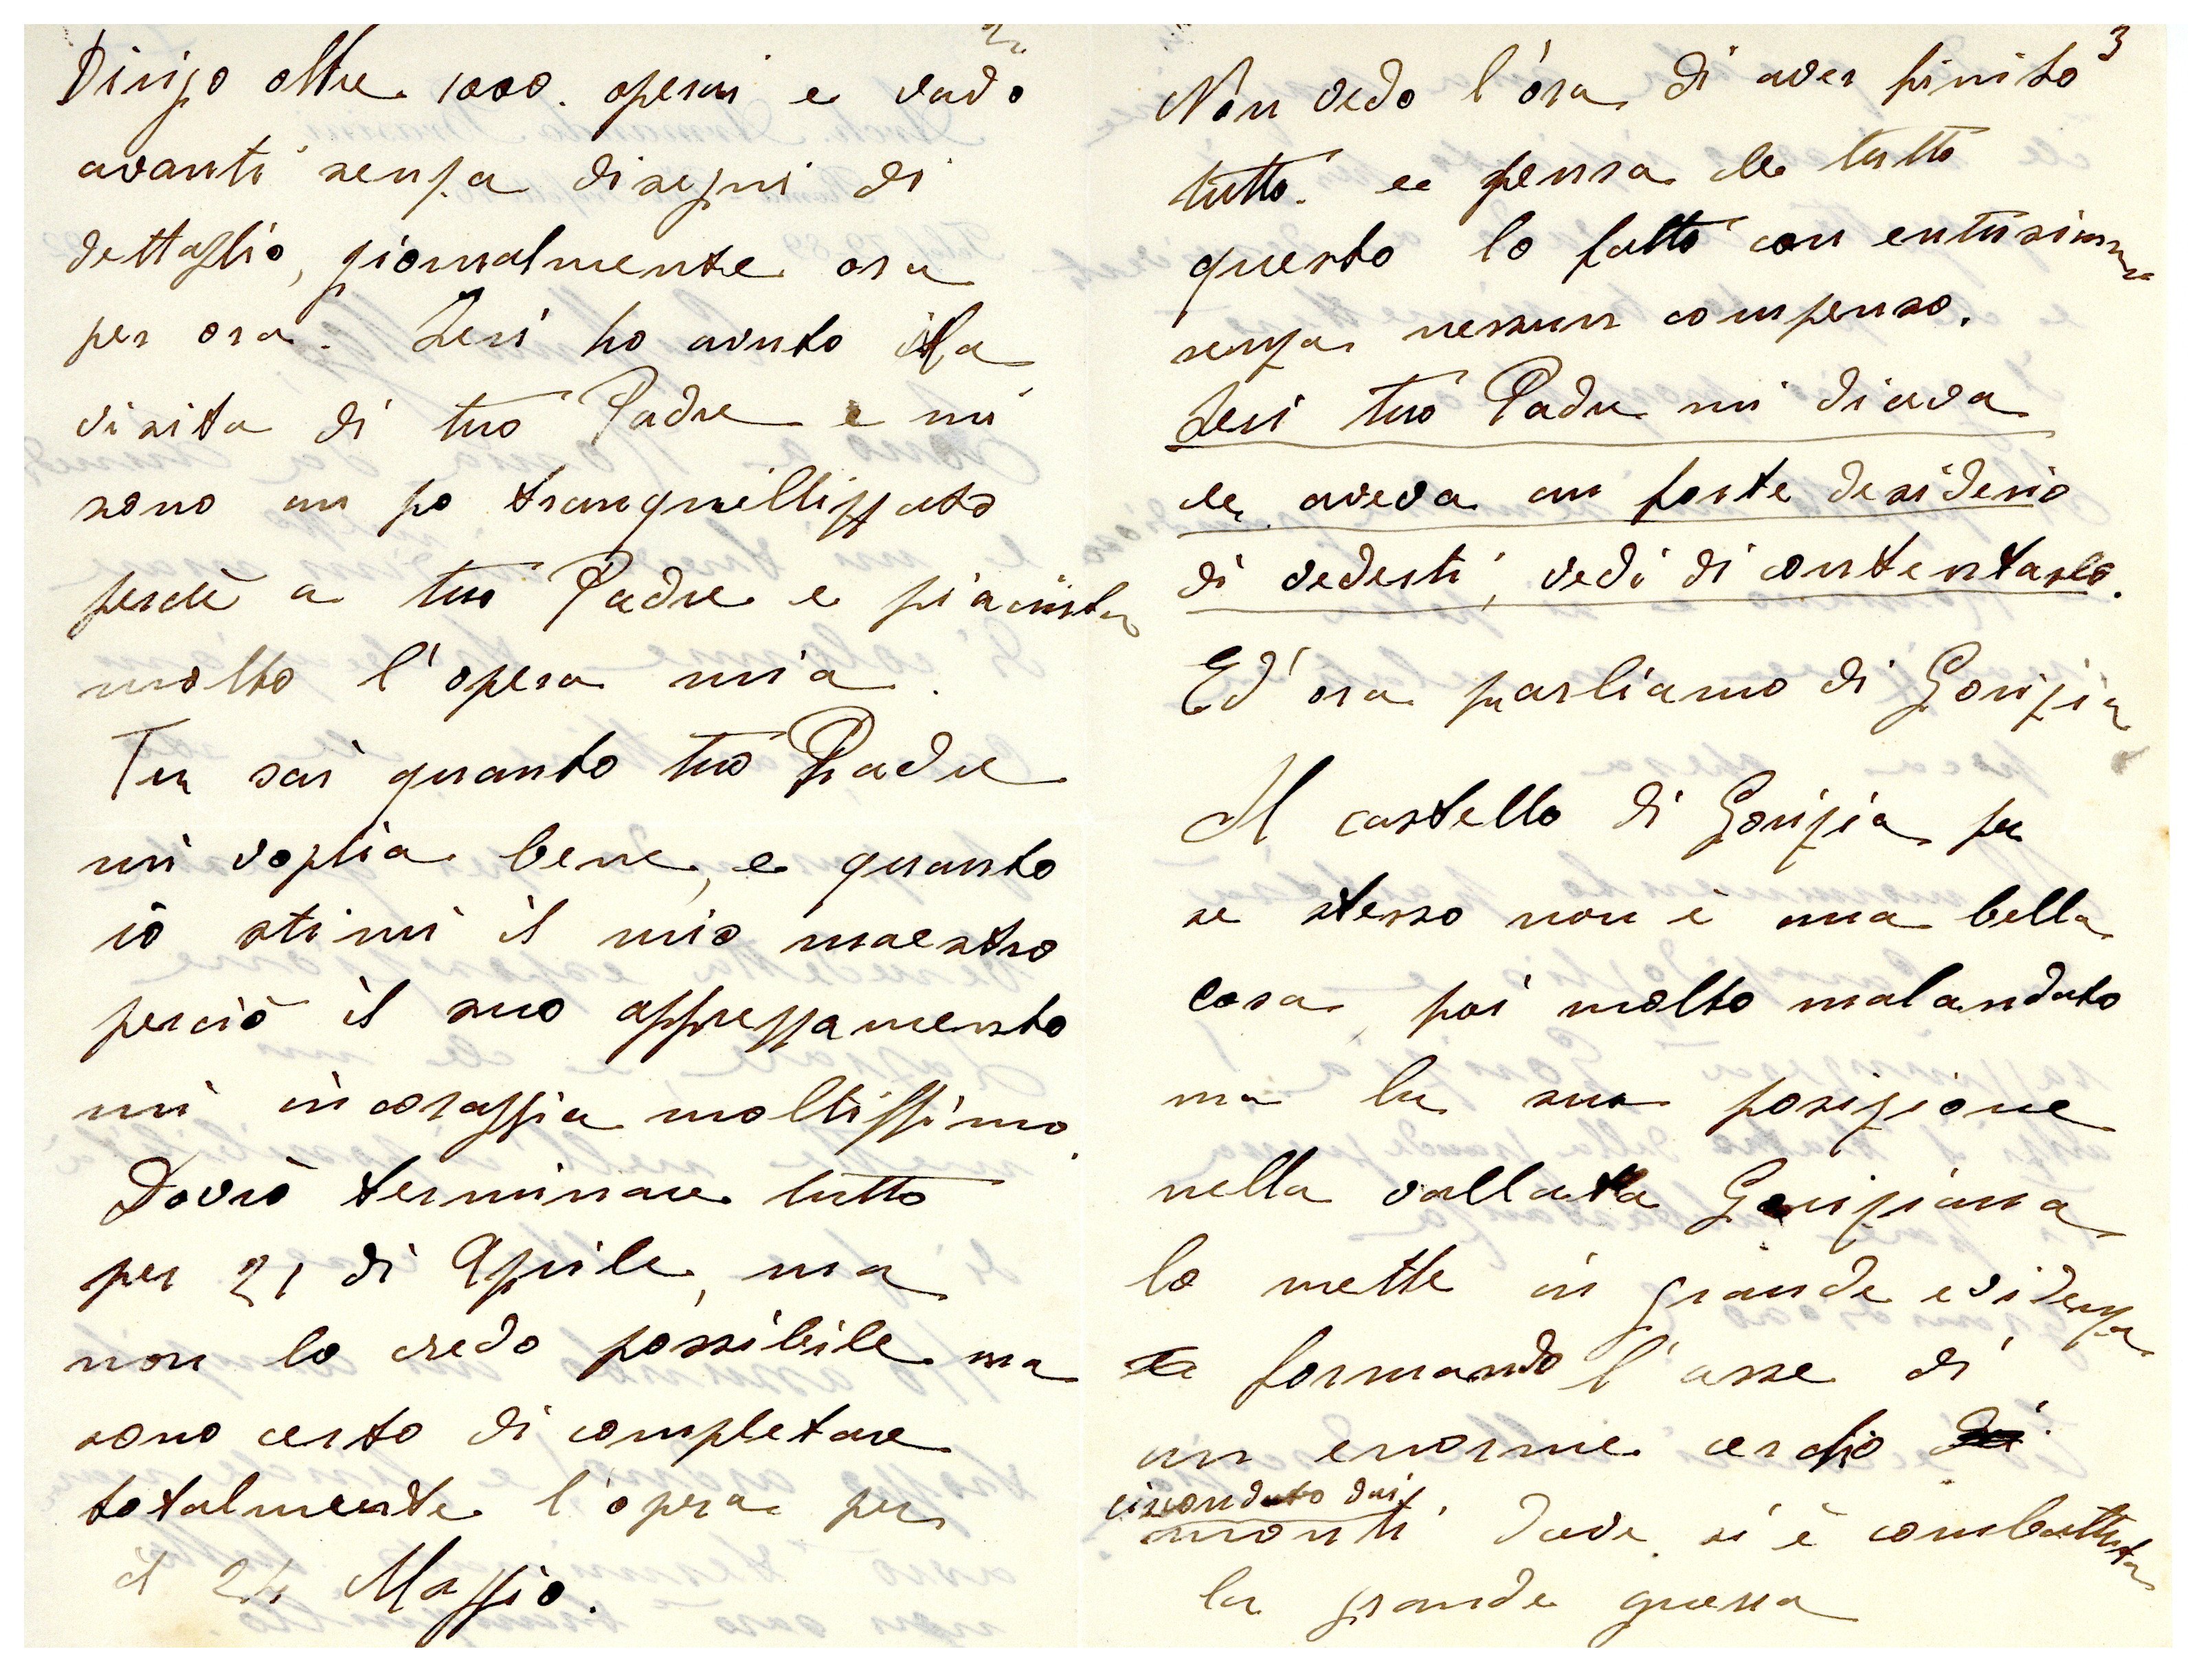 2
Dirigo oltre 1000. operai e vado
avanti senza disegni di
dettaglio, giornalmente ora
per ora. Ieri ho avuto la
visita di tuo Padre e mi
sono un po tranquillizzato
perchè a tuo Padre e piaciuta
molto l'opera mia.
Tu sai quanto tuo Padre
mi voglia bene, e quanto
iò stimi il mio maestro
perciò il suo apprezzamento
mi incoraggia moltissimo.
Dovrò terminare tutto
per 21 di Aprile, ma
non lo credo possibile ma
sono certo di completare
totalmente l'opera per
il 24 Maggio.
3
Non vedo l'ora di aver finito
tutto. e pensa che tutto
questo lo fatto con entusiasmo
senza nessun compenso.
Ieri tuo Padre mi diceva
che aveva un forte desiderio
di vederti, vedi di contentarlo.
Ed' ora parliamo di Gorizia
Il castello di Gorizia per
se stesso non è una bella
cosa, poi molto malandato
ma la sua posizione
nella vallata Goriziana
lo mette in grande evidenza
formando l'asse di
un enorme cerchio
circondato dai
monti dove si è combattuta
la grande guerra